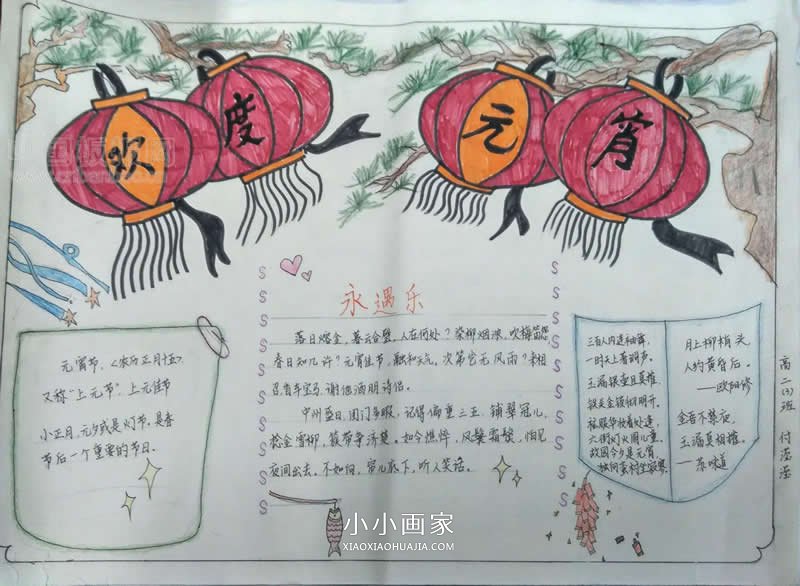 欢度元宵
永遇乐
元宵节,(农历正月十五),
又称"上元节",上元佳节
小正月,元夕或是灯节,是春
节后一个重要的节日。
落日熔金,暮云合璧,人在何处?染柳烟浓,吹梅笛怨
春日知几许?元宵佳节,融和天气,次第岂无风雨?来相
召香车宝马,谢他酒朋诗侣。
中州盛日,闺门多暇,记得偏重三五,铺翠冠儿,
捻金雪柳,簇带争济楚。如今憔悴,风鬟霜鬓,怕见
夜间出去。不如向,帘儿底下,听人笑语。
三百人内连袖舞,
一时天上著词声。
玉漏银壶且莫催,
铁关金锁彻明开。
六街灯火闹儿童。
故园今夕是元宵
独向蛮村坐寂寥
月上柳梢头
人约黄昏后。
——欧阳修
金吾不禁夜,
玉漏莫相催。
——苏味道
高二(3)班
小小画家
XIAOXIAOHUAJIA.COM